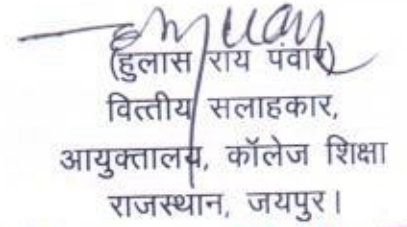 (हुलास राय पंवार)
वित्तीय सलाहकार,
आयुक्तालय, कॉलेज शिक्षा
राजस्थान, जयपुर।